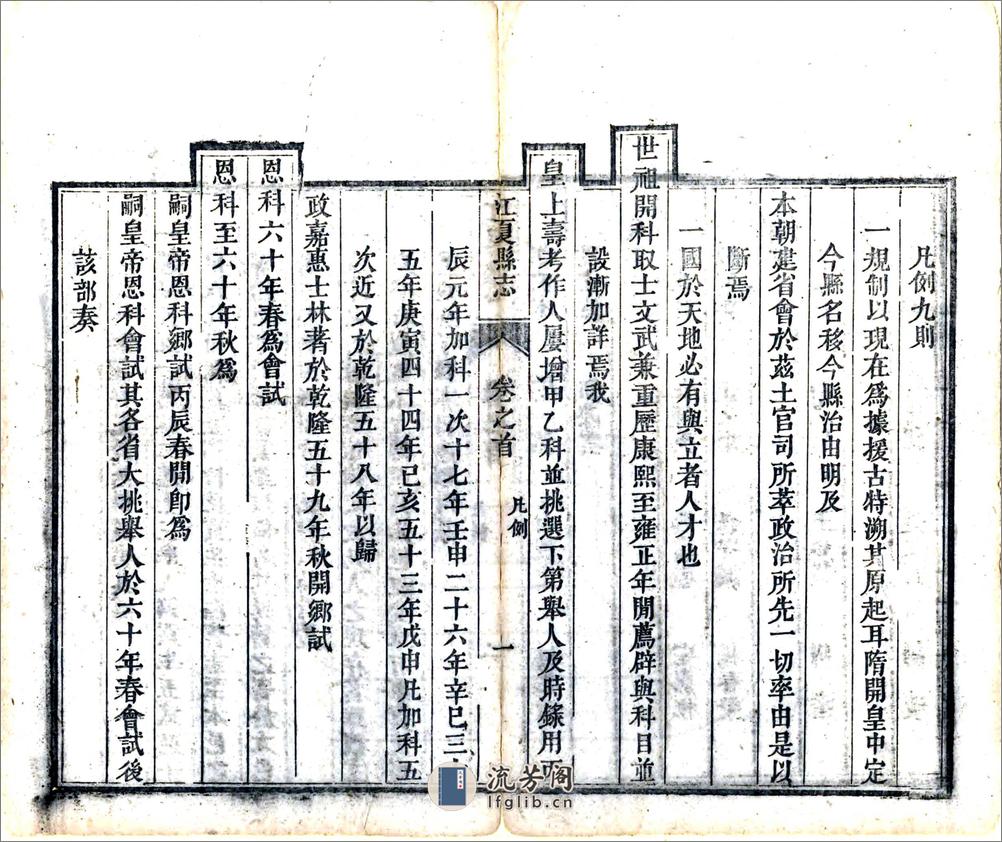 凡例九則
一規制以現在爲據援古特溯其原起耳隋開皇中定
今縣名移今縣治由明及
本朝建省會於茲土官司所萃政治所先一切率由是以
斷焉
一國於天地必有與立者人才也
世祖開科取士文武兼重歷康熙至雍正年間薦辟與科目並
設漸加詳焉我
皇上壽考作人屢增甲乙科並挑選下第舉人及時錄用
江夏縣志 卷之首 凡例 一
辰元年加科一次十七年壬申二十六年辛巳三
五年庚寅四十四年己亥五十三年戊申凡加科五
次近又於乾隆五十八年以歸
政嘉惠士林著於乾隆五十九年秋開鄉試
恩科六十年春爲會試
恩科至六十年秋爲
嗣皇帝恩科鄉試丙辰春開卽爲
嗣皇帝恩科會試其各省大挑舉人於六十年春會試後
該部奏
流芳閣
lfglib.cn